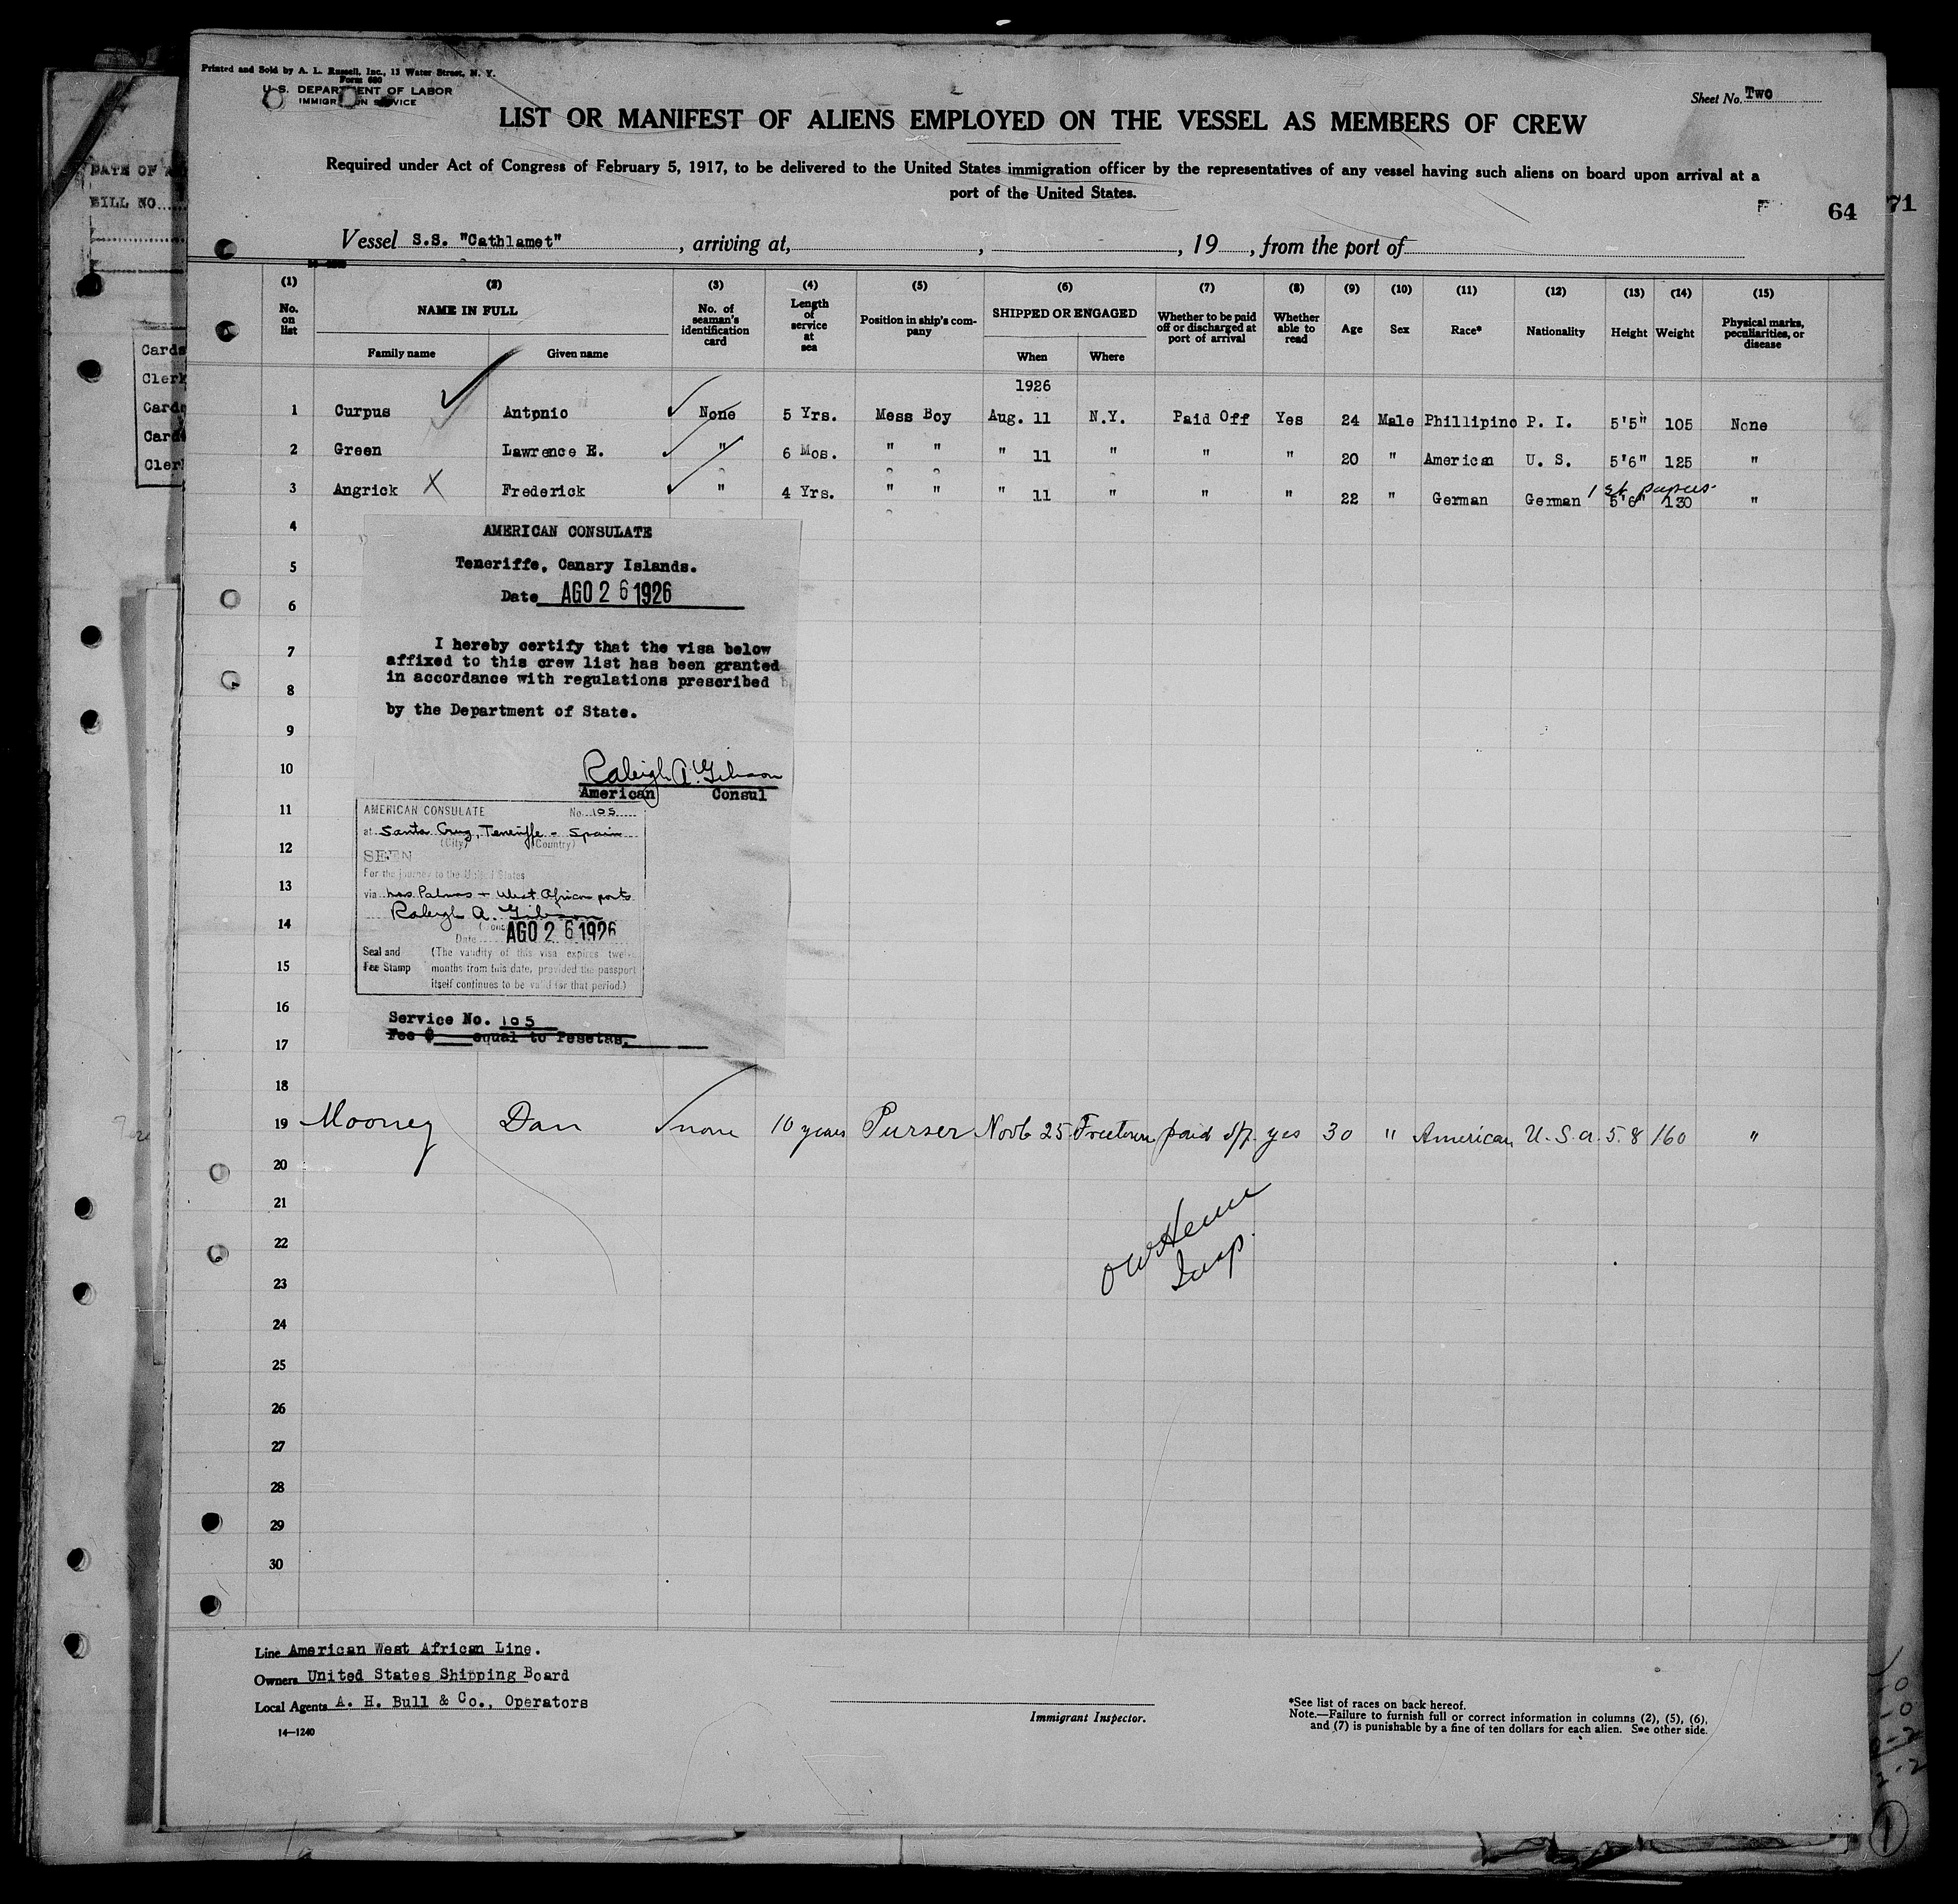 Printed and Sold by A. L. Russell, Inc., 15 Water Street, N. Y.
Form 680
U.S. DEPARTMENT OF LABOR
IMMIGRATION SERVICE
Sheet No. Two
LIST OR MANIFEST OF ALIENS EMPLOYED ON THE VESSEL AS MEMBERS OF CREW
Required under Act of Congress of February 5, 1917, to be delivered to the United States immigration officer by the representatives of any vessel having such aliens on board upon arrival at a
port of the United States.
64
71
DATE OF A
BILL NO
Vessel S.S. "Cathlamet", arriving at, , 19 , from the port of
(1) (2) (3) (4) (5) (6) (7) (8) (9) (10) (11) (12) (13) (14) (15)
No. on list NAME IN FULL No. of seaman's identification card Length of service at sea Position in ship's company SHIPPED OR ENGAGED Whether to be paid off or discharged at port of arrival Whether able to read Age Sex Race* Nationality Height Weight Physical marks, peculiarities, or disease
Family name Given name When Where
Cards
Clerk
Cards
Cards
Clerk
1926
1 Curpus Antonio None 5 Yrs. Mess Boy Aug. 11 N.Y. Paid Off Yes 24 Male Phillipino P. I. 5'5" 105 None
2 Green Lawrence E. " 6 Mos. " " " 11 " " " 20 " American U. S. 5'6" 125 "
3 Angrick X Frederick " 4 Yrs. " " " 11 " " " 22 " German German 5'6" 130 "
4
5
6
7
8
9
10
11
12
13
14
15
16
17
18
AMERICAN CONSULATE
Teneriffe, Canary Islands.
Date AGO 26 1926
I hereby certify that the visa below
affixed to this crew list has been granted
in accordance with regulations prescribed
by the Department of State.
Raleigh A. Gibson
American Consul
AMERICAN CONSULATE No. 105
at Santa Cruz, Teneriffe - Spain
(City) (Country)
SEEN
For the journey to the United States
via Las Palmas + West African ports
Raleigh A. Gibson
Date AGO 26 1926
Seal and Fee Stamp
(The validity of this visa expires twelve
months from this date, provided the passport
itself continues to be valid for that period.)
Service No. 105
Fee $ equal to Pesetas.
19 Mooney Dan none 10 years Purser Novb 25 Freetown paid off yes 30 " American U.S.A. 5.8 160 "
20
21
22
Insp.
23
24
25
26
27
28
29
30
Line American West African Line.
Owners United States Shipping Board
Local Agents A. H. Bull & Co., Operators
14—1240
Immigrant Inspector.
*See list of races on back hereof.
Note.—Failure to furnish full or correct information in columns (2), (5), (6),
and (7) is punishable by a fine of ten dollars for each alien. See other side.